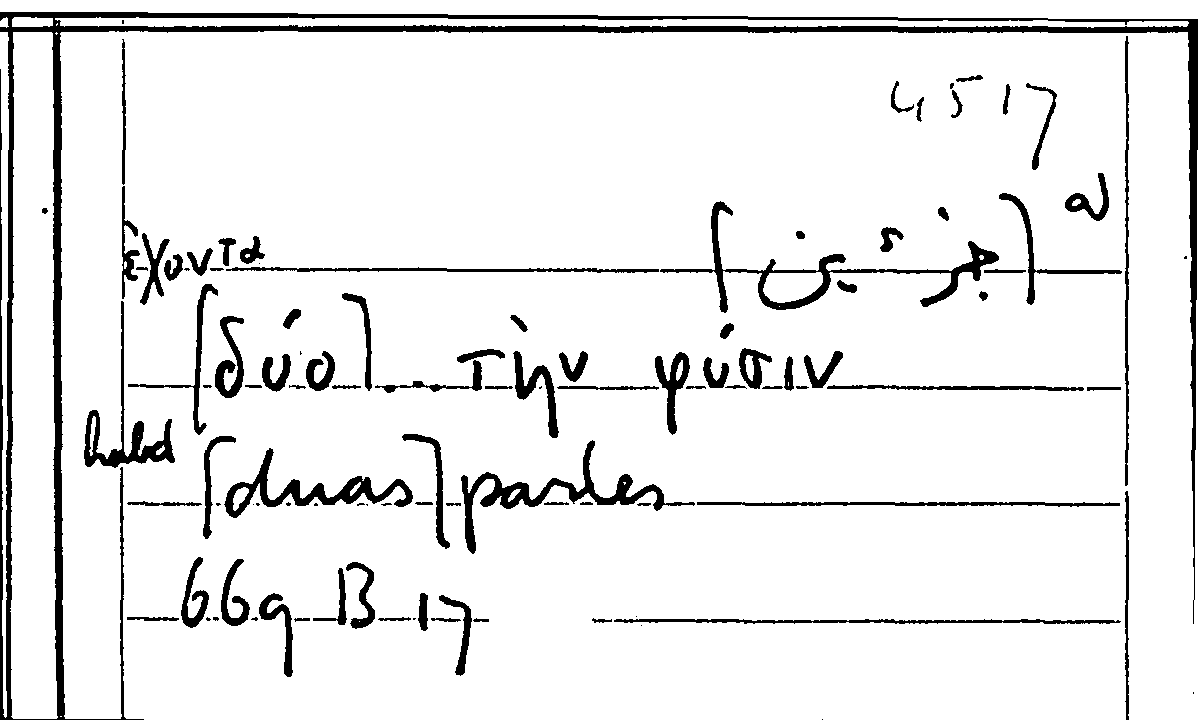 4517
له [جزئين]
ἔχοντα
[δύο] ... τὴν φύσιν
habet [duas] partes
669 B 17